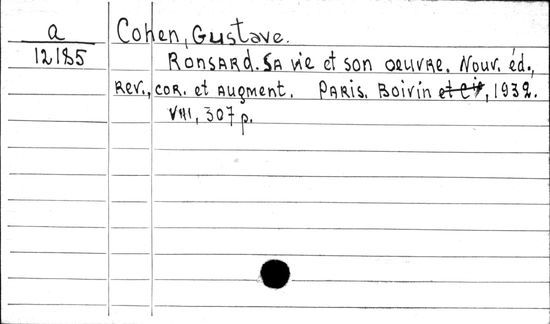 a
12185
Cohen, Gustave.
Ronsard. Sa vie et son oeuvre. Nouv. éd.,
rev., cor. et augment. Paris. Boivin et Cie, 1932.
VIII, 307 p.